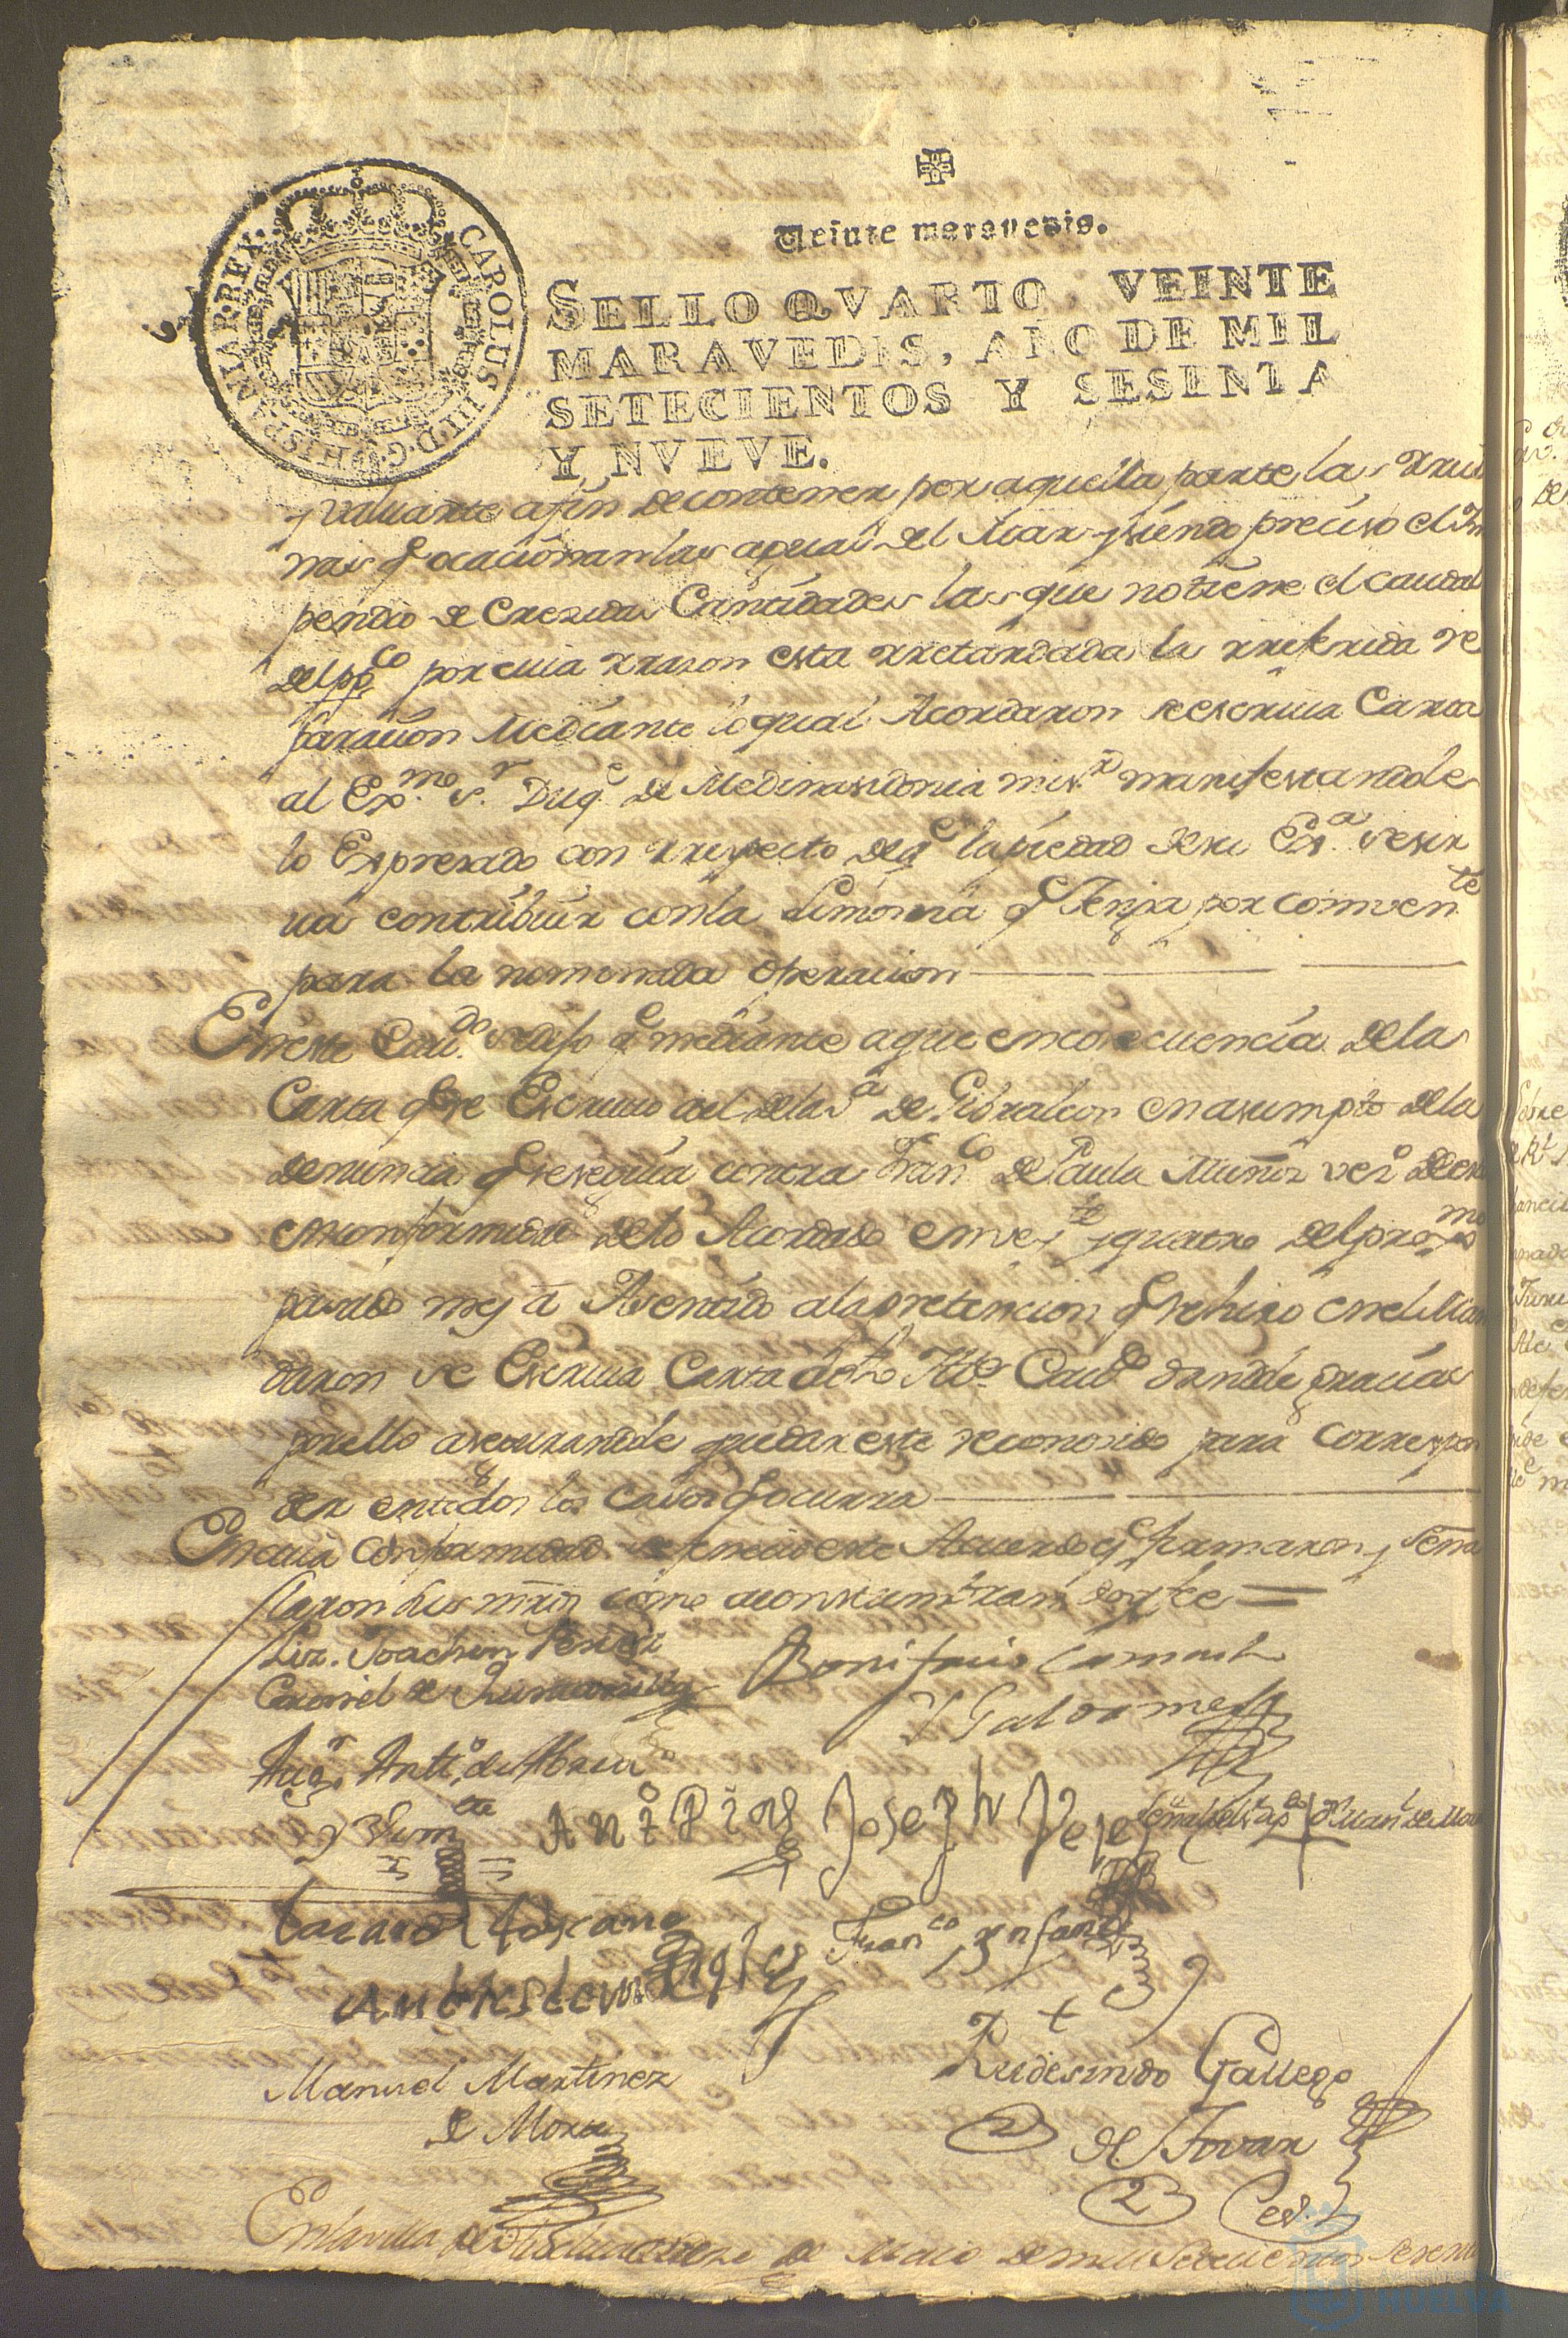 Veinte maravedis.
SELLO QVARTO, VEINTE
MARAVEDIS, AÑO DE MIL
SETECIENTOS Y SESENTA
Y NVEVE.
CAROLUS III D.G. HISPANIAR. REX
y valuarte afin de contener por aquella parte las rrui
nas q ocacionan las aguas del Mar y siendo preciso el Im
pendio de Crezidas Cantidades las que no tiene el caudal
del pp.co por cuia rrason esta rretardada la rreferida re
paracion Mediante lo qual Acordaron se escriva Carta
al Ex.mo s.r Duq.e de Medinasidonia mi s.r manifestandole
lo Expresado con rrespecto de q.e la piedad de su Ex.a se sir
va contribuir con la Limosna q.e Tenga por conven.te
para la nominada operacion
En este Cav.do se dijo q.e mediante a que en consecuencia de la
Carta q.e se Escrivio al de la V.a de Gibraleon en asumpto de la
denuncia q.e se seguia contra Fran.co de Paula Muñoz vez.o de esta
en conformidad de lo Acordado en vey.te y quatro del prox.mo
pasado mes a Asentido a la pretencion q.e se hizo
daron se Escriva Carta a dho Ittre Cav.do dandole gracias
por ello asegurandole quedar este reconosido para Correspon
der en todos los casos q.e ocurra
En cuia Conformidad se fenecio este Acuerdo q.e firmaron y Seña
llaron sus mrds como acostumbran doy fee =
Liz. Joachin Perez
Coronel de
Bonifacio
y Galdames
Ag.n Antt.o de Abreu
Ant.o Rioz
Joseph Perez
señal del cap.n + d.n Man.l de Mora
Lazaro toscano
Fran.co Ynfante
Manuel Martinez
de Mora
Rudesindo Gallego
de Tovar
En la villa de Huelva de Maio de mill Setecientos Sesen
Ayuntamiento de
HUELVA